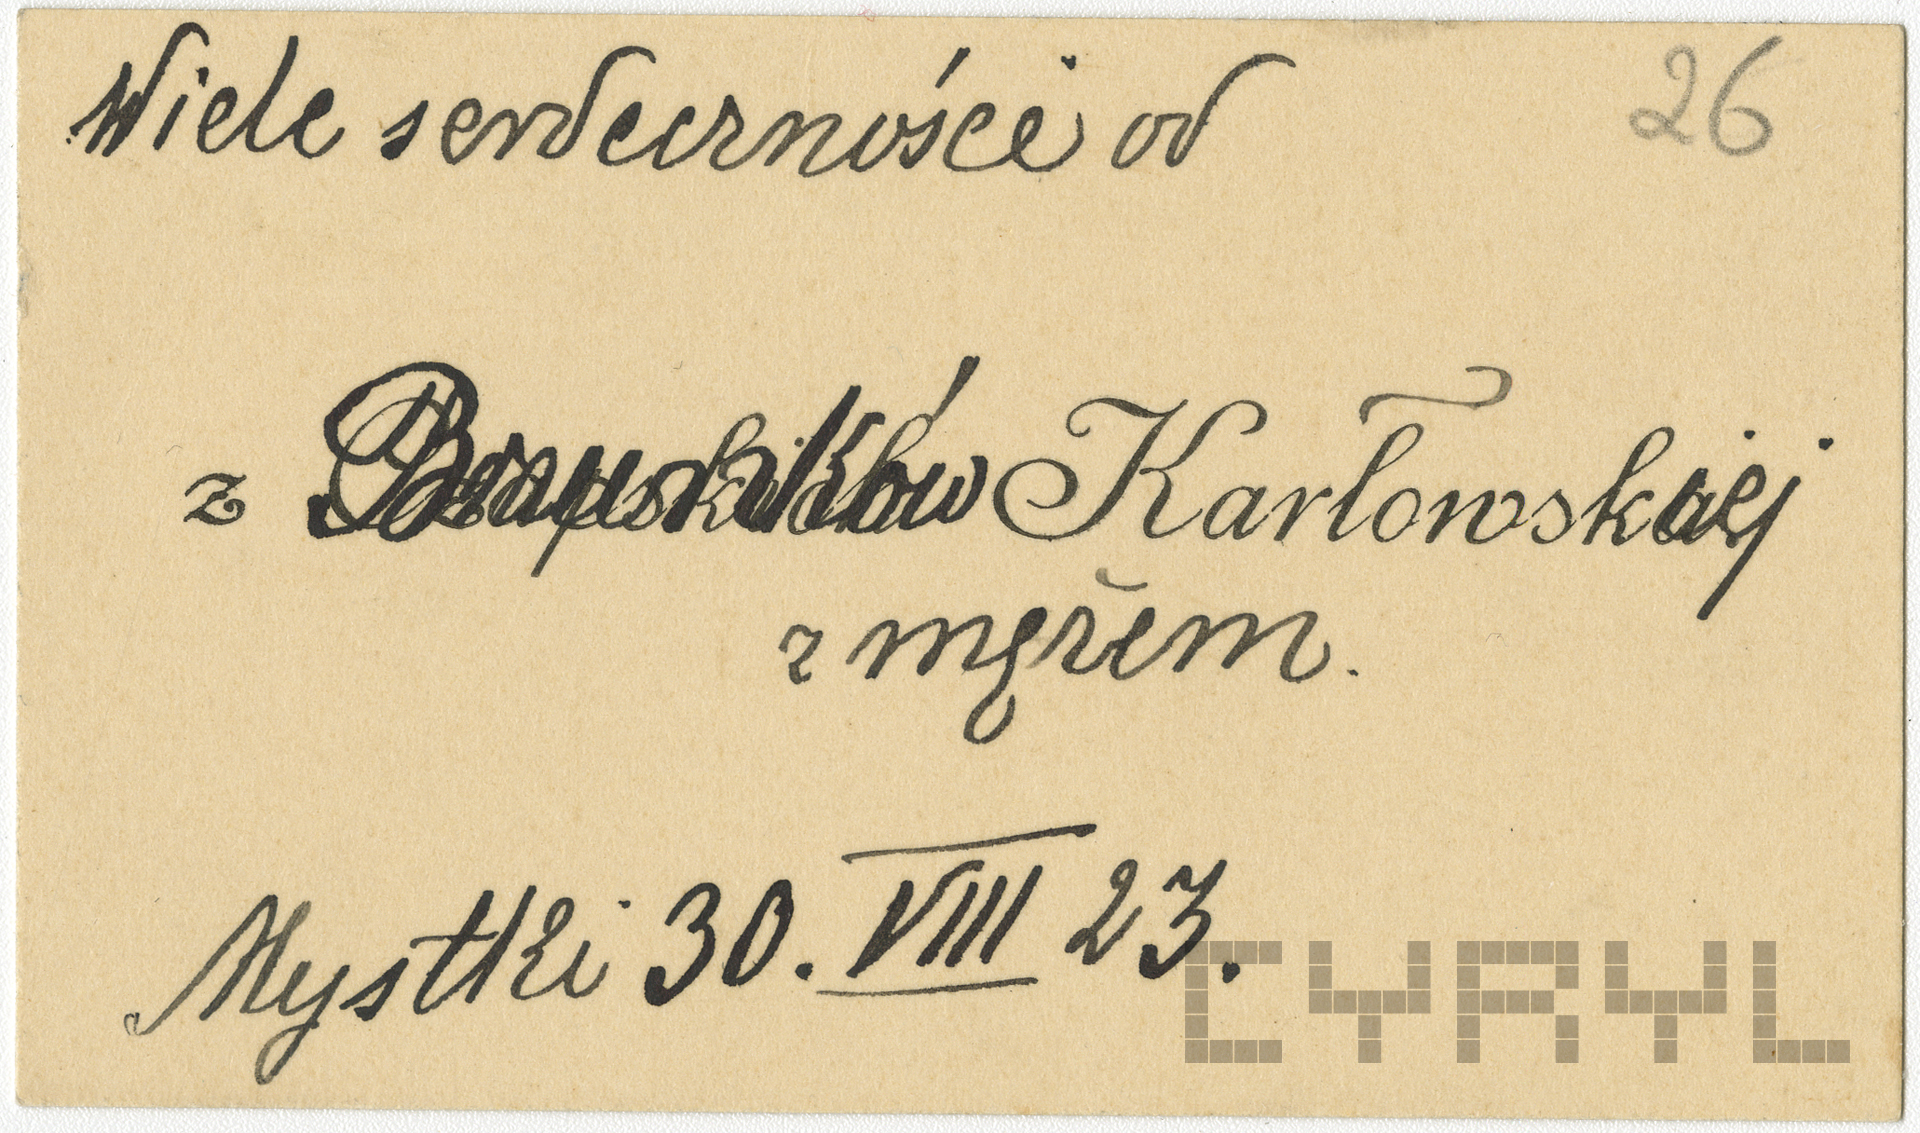 Wiele serdeczności od
26
z Karłowskiej
z mężem.
Mystki 30. VIII 23.
CYRYL